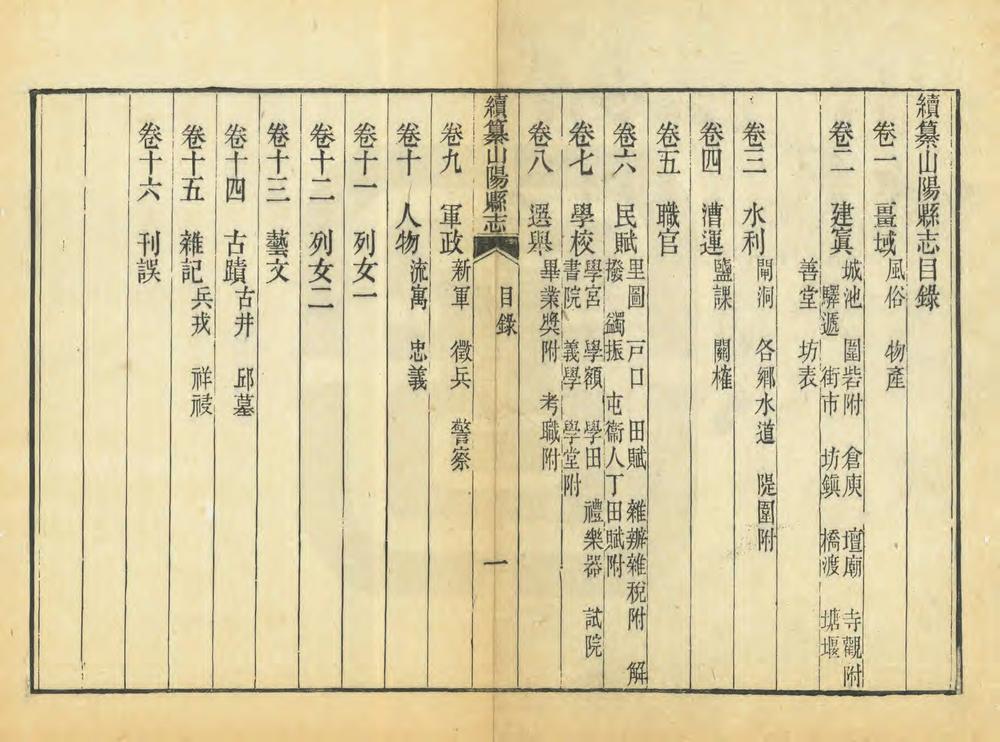 續纂山陽縣志目錄
卷一　畺域　風俗　物產
卷二　建寘　城池　圍砦附　倉庾　壇廟　寺觀附
驛遞　街市　坊鎭　橋渡　塘堰
善堂　坊表
卷三　水利　閘洞　各鄉水道　隄圍附
卷四　漕運　鹽課　關榷
卷五　職官
卷六　民賦　里圖　戸口　田賦　雜辦雜稅附　解
撥　蠲振　屯衞人丁田賦附
卷七　學校　學宮　學額　學田　禮樂器　試院
書院　義學　學堂附
卷八　選舉　畢業獎附　考職附
續纂山陽縣志　目錄　一
卷九　軍政　新軍　徵兵　警察
卷十　人物　流寓　忠義
卷十一　列女一
卷十二　列女二
卷十三　藝文
卷十四　古蹟　古井　邱墓
卷十五　雜記　兵戎　祥祲
卷十六　刊誤